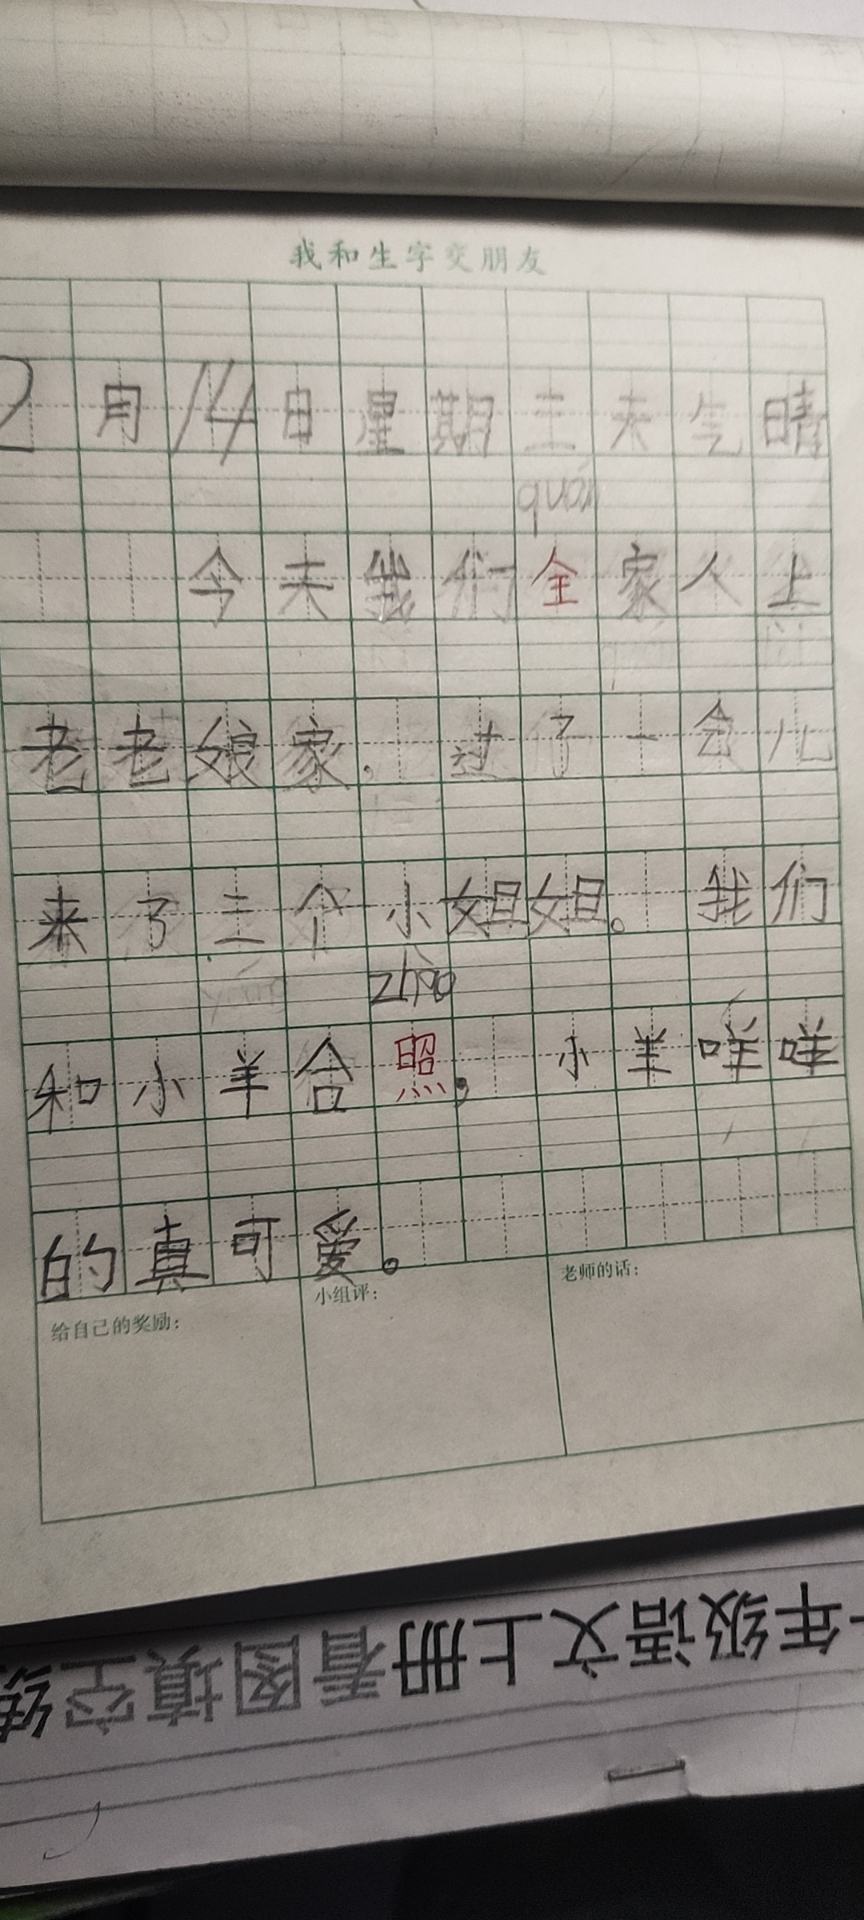 我和生字交朋友
2月14日星期三天气晴
quán
今天我们全家人上
老老娘家，过了一会儿
来了三个小姐姐。我们
zhào
和小羊合照，小羊咩咩
的真可爱。
给自己的奖励：
小组评：
老师的话：
一年级语文上册看图填空练